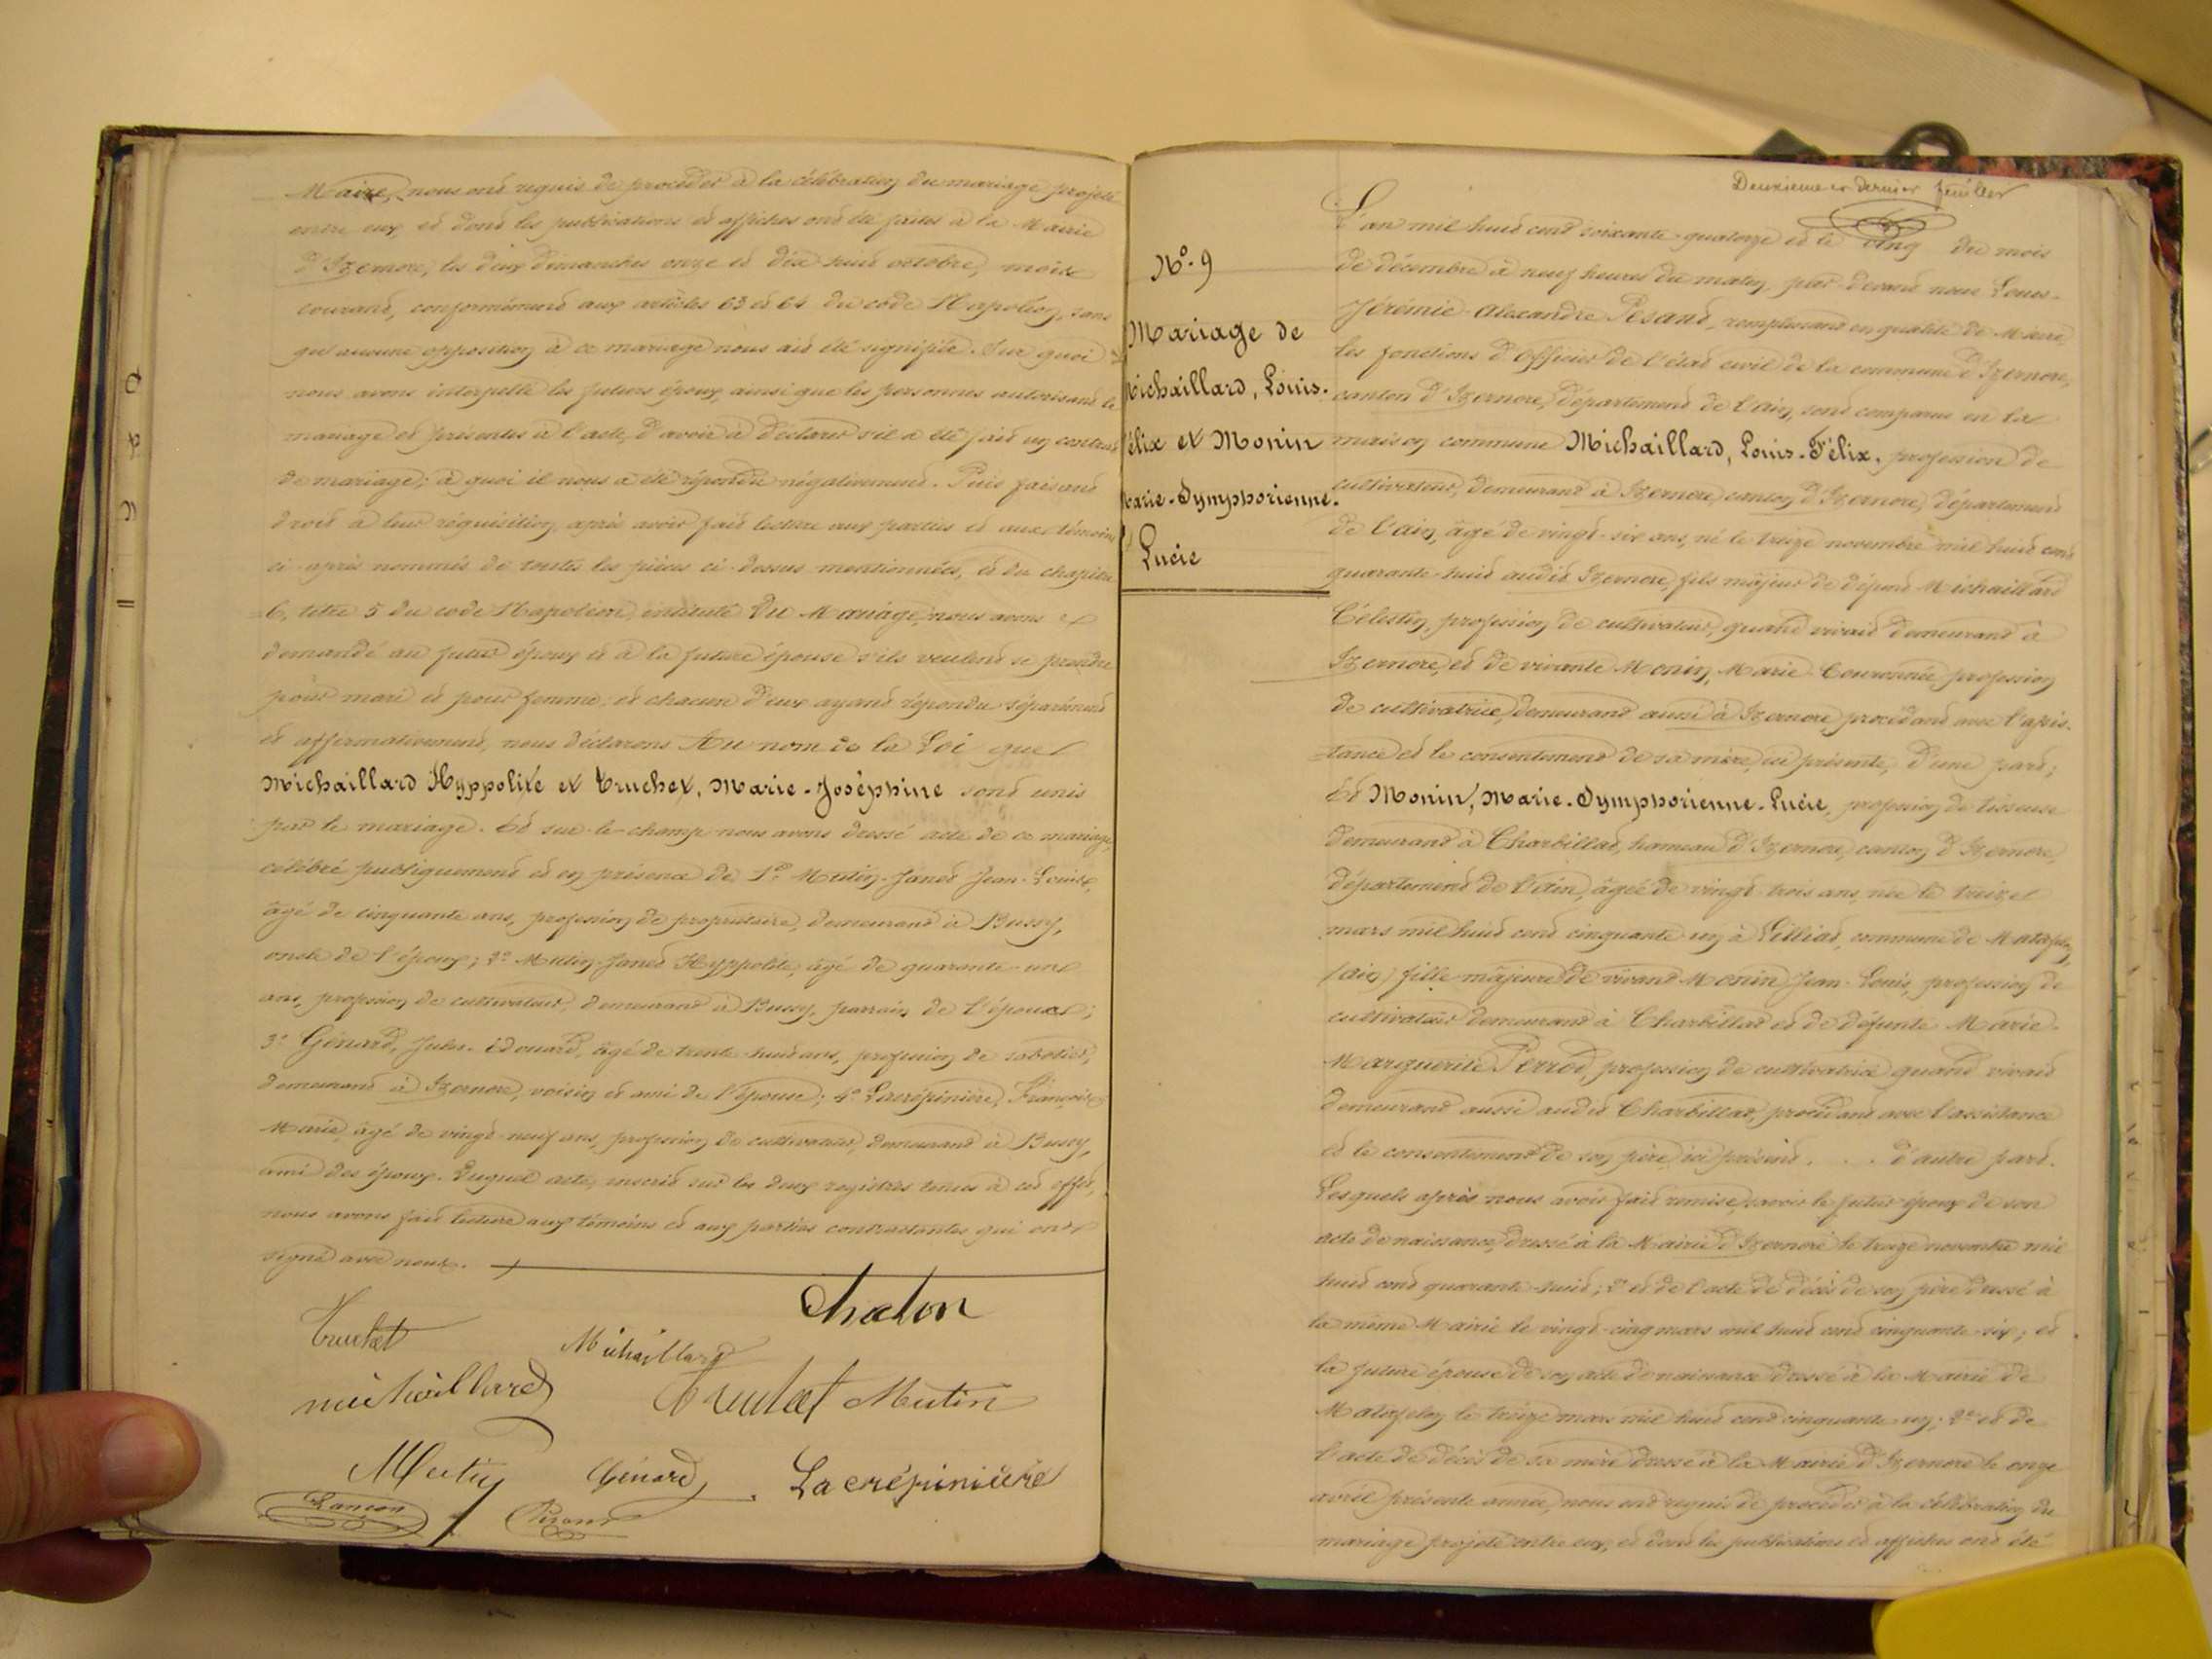 Maire, nous ont requis de procéder à la célébration du mariage projeté
entre eux, et dont les publications et affiches ont été faites à la Mairie
d'Izernore, les deux dimanches onze et dix huit octobre, mois
courant, conformément aux articles 63 et 64 du code Napoléon, sans
qu'aucune opposition à ce mariage nous ait été signifiée. Sur quoi
nous avons interpellé les futurs époux, ainsi que les personnes autorisant le
mariage et présentes à l'acte, d'avoir à déclarer s'il a été fait un contrat
de mariage; à quoi il nous a été répondu négativement. Puis faisant
droit à leur réquisition, après avoir fait lecture aux parties et aux témoins
ci-après nommés de toutes les pièces ci-dessus mentionnées, et du chapitre
6, titre 5 du code Napoléon, intitulé Du Mariage, nous avons
demandé au futur époux et à la future épouse s'ils veulent se prendre
pour mari et pour femme; et chacun d'eux ayant répondu séparément
et affirmativement, nous déclarons Au nom de la Loi que
Michaillard Hyppolite et Truchet, Marie-Joséphine sont unis
par le mariage. Et sur-le-champ nous avons dressé acte de ce mariage,
célébré publiquement et en présence de 1° Mutin-Janet Jean-Louis,
âgé de cinquante ans, profession de propriétaire, demeurant à Bussy,
oncle de l'époux; 2° Mutin-Janet Hyppolite, âgé de quarante-un
ans, profession de cultivateur, demeurant à Bussy, parrain de l'époux;
3° Génard, Jules-Edouard, âgé de trente-huit ans, profession de sabotier,
demeurant à Izernore, voisin et ami de l'épouse; 4° Lacrépinière, François
Marie, âgé de vingt-neuf ans, profession de cultivateur, demeurant à Bussy,
ami des époux. Duquel acte, inscrit sur les deux registres tenus à cet effet,
nous avons fait lecture aux témoins et aux parties contractantes qui ont
signé avec nous.
Chalon
Truchet Michaillard
michaillard Truchet Mutin
Mutin Génard Lacrépinière
Lançon Pesant
Deuxième et dernier feuillet
N°. 9
Mariage de
Michaillard, Louis-
Félix et Monin
Marie-Symphorienne-
Lucie
L'an mil huit cent soixante-quatorze et le cinq du mois
de décembre à neuf heures du matin, par-devant nous Louis-
Jérémie-Alexandre Pesant, remplissant en qualité de Maire
les fonctions d'Officier de l'état civil de la commune d'Izernore,
canton d'Izernore, département de l'ain, sont comparus en la
maison commune Michaillard, Louis-Félix, profession de
cultivateur, demeurant à Izernore, canton d'Izernore, département
de l'ain, âgé de vingt-six ans, né le treize novembre mil huit cent
quarante-huit audit Izernore, fils majeur de défunt Michaillard
Célestin, profession de cultivateur, quand vivait demeurant à
Izernore, et de vivante Monin, Marie-Couronnée, profession
de cultivatrice, demeurant aussi à Izernore procédant avec l'assis-
tance et le consentement de sa mère, ici présente, d'une part;
Et Monin, Marie-Symphorienne-Lucie, profession de tisseuse
demeurant à Charbillat, hameau d'Izernore, canton d'Izernore,
département de l'Ain, âgée de vingt-trois ans, née le treize
mars mil huit cent cinquante un à Gilliat, commune de Matafelon,
(ain) fille majeure de vivant Monin Jean-Louis, profession de
cultivateur demeurant à Charbillat et de défunte Marie-
Marguerite Perrod, profession de cultivatrice quand vivait
demeurant aussi audit Charbillat, procédant avec l'assistance
et le consentement de son père, ici présent. . . d'autre part.
Lesquels après nous avoir fait remise, savoir le futur époux de son
acte de naissance, dressé à la Mairie d'Izernore le treize novembre mil
huit cent quarante-huit; 2° et de l'acte de décès de son père dressé à
la même Mairie le vingt-cinq mars mil huit cent cinquante-six; et
la future épouse de son acte de naissance dressé à la Mairie de
Matafelon le treize mars mil huit cent cinquante-un; 2° et de
l'acte de décès de sa mère dressé à la Mairie d'Izernore le onze
avril présente année, nous ont requis de procéder à la célébration du
mariage projeté entre eux, et dont les publications et affiches ont été